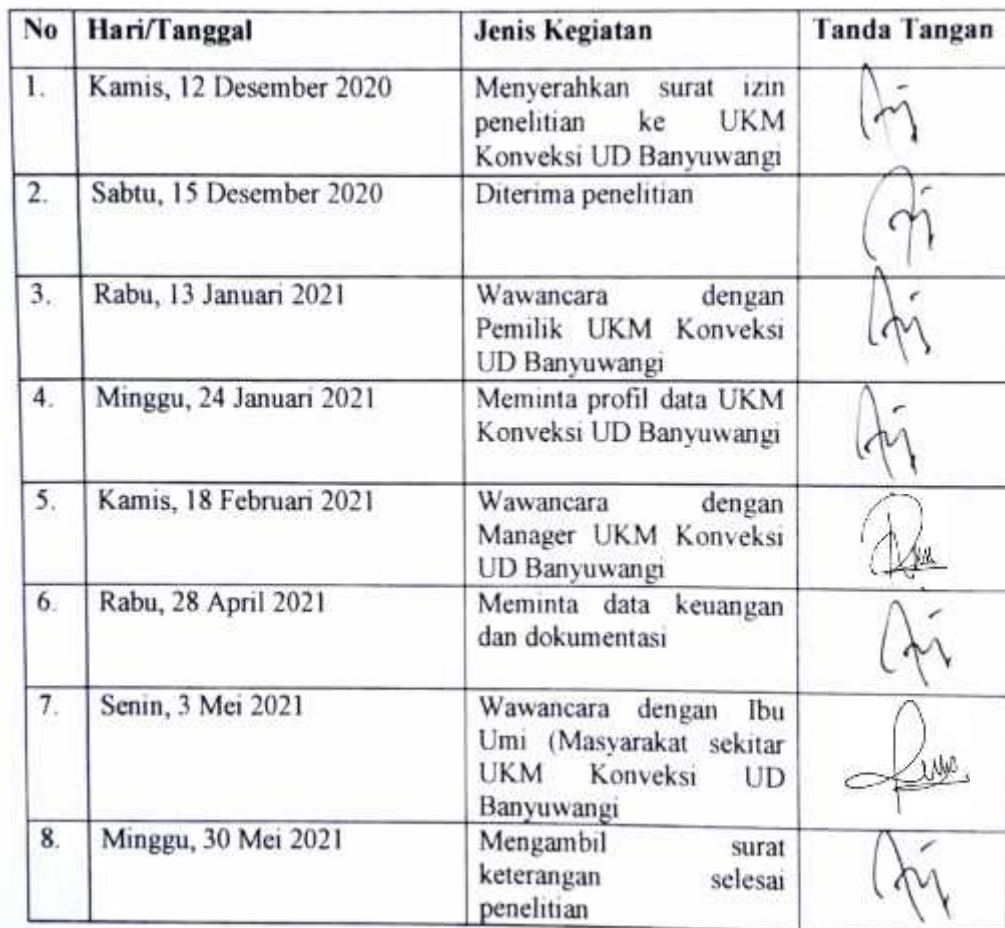 No Hari/Tanggal Jenis Kegiatan Tanda Tangan
1. Kamis, 12 Desember 2020 Menyerahkan surat izin
penelitian ke UKM
Konveksi UD Banyuwangi
2. Sabtu, 15 Desember 2020 Diterima penelitian
3. Rabu, 13 Januari 2021 Wawancara dengan
Pemilik UKM Konveksi
UD Banyuwangi
4. Minggu, 24 Januari 2021 Meminta profil data UKM
Konveksi UD Banyuwangi
5. Kamis, 18 Februari 2021 Wawancara dengan
Manager UKM Konveksi
UD Banyuwangi
6. Rabu, 28 April 2021 Meminta data keuangan
dan dokumentasi
7. Senin, 3 Mei 2021 Wawancara dengan Ibu
Umi (Masyarakat sekitar
UKM Konveksi UD
Banyuwangi
8. Minggu, 30 Mei 2021 Mengambil surat
keterangan selesai
penelitian